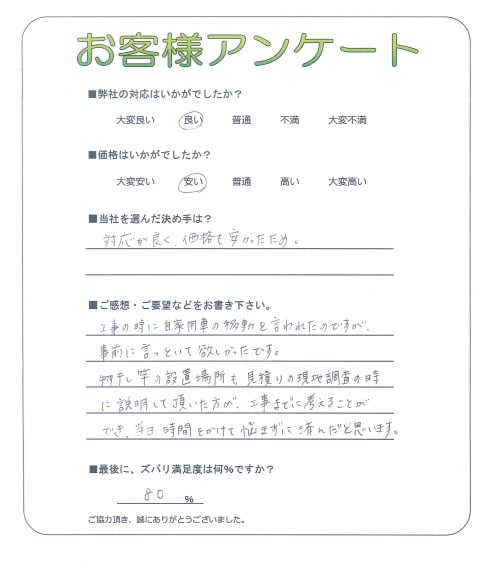 お客様アンケート
■弊社の対応はいかがでしたか？
大変良い 良い 普通 不満 大変不満
■価格はいかがでしたか？
大変安い 安い 普通 高い 大変高い
■当社を選んだ決め手は？
対応が良く、価格も安かったため。
■ご感想・ご要望などをお書き下さい。
工事の時に自家用車の移動を言われたのですが、
事前に言っといて欲しかったです。
物干し竿の設置場所も見積りの現地調査の時
に説明して頂いた方が、工事までに考えることが
でき、当日時間をかけて悩まずに済んだと思います。
■最後に、ズバリ満足度は何%ですか？
80 %
ご協力頂き、誠にありがとうございました。